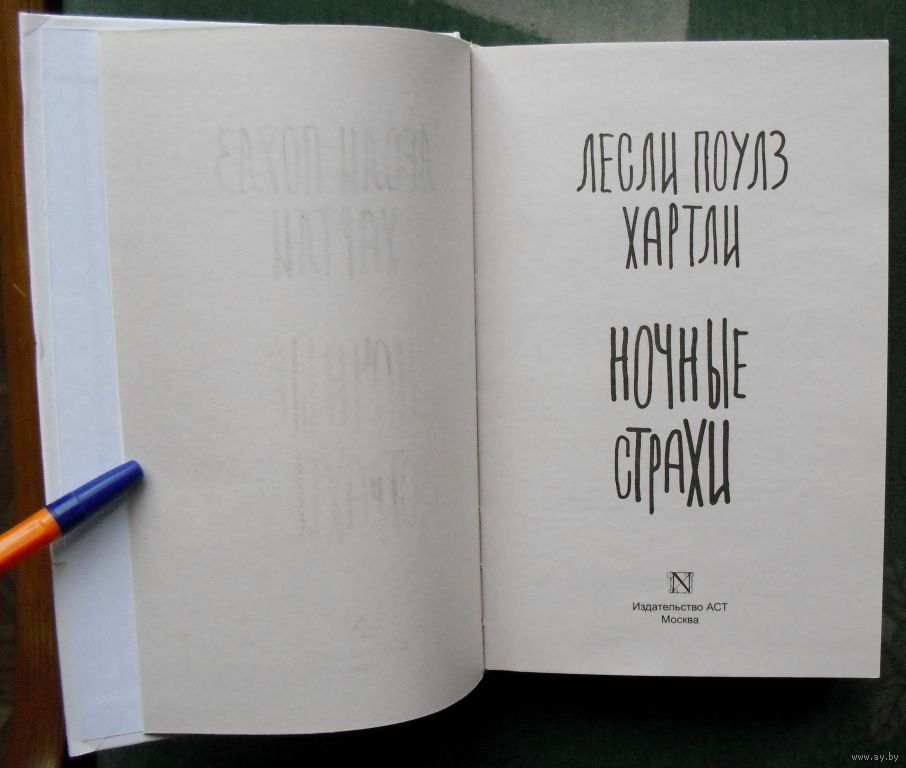 ЛЕСЛИ ПОУЛЗ
ХАРТЛИ
НОЧНЫЕ
СТРАХИ
N
Издательство АСТ
Москва
www.ay.by